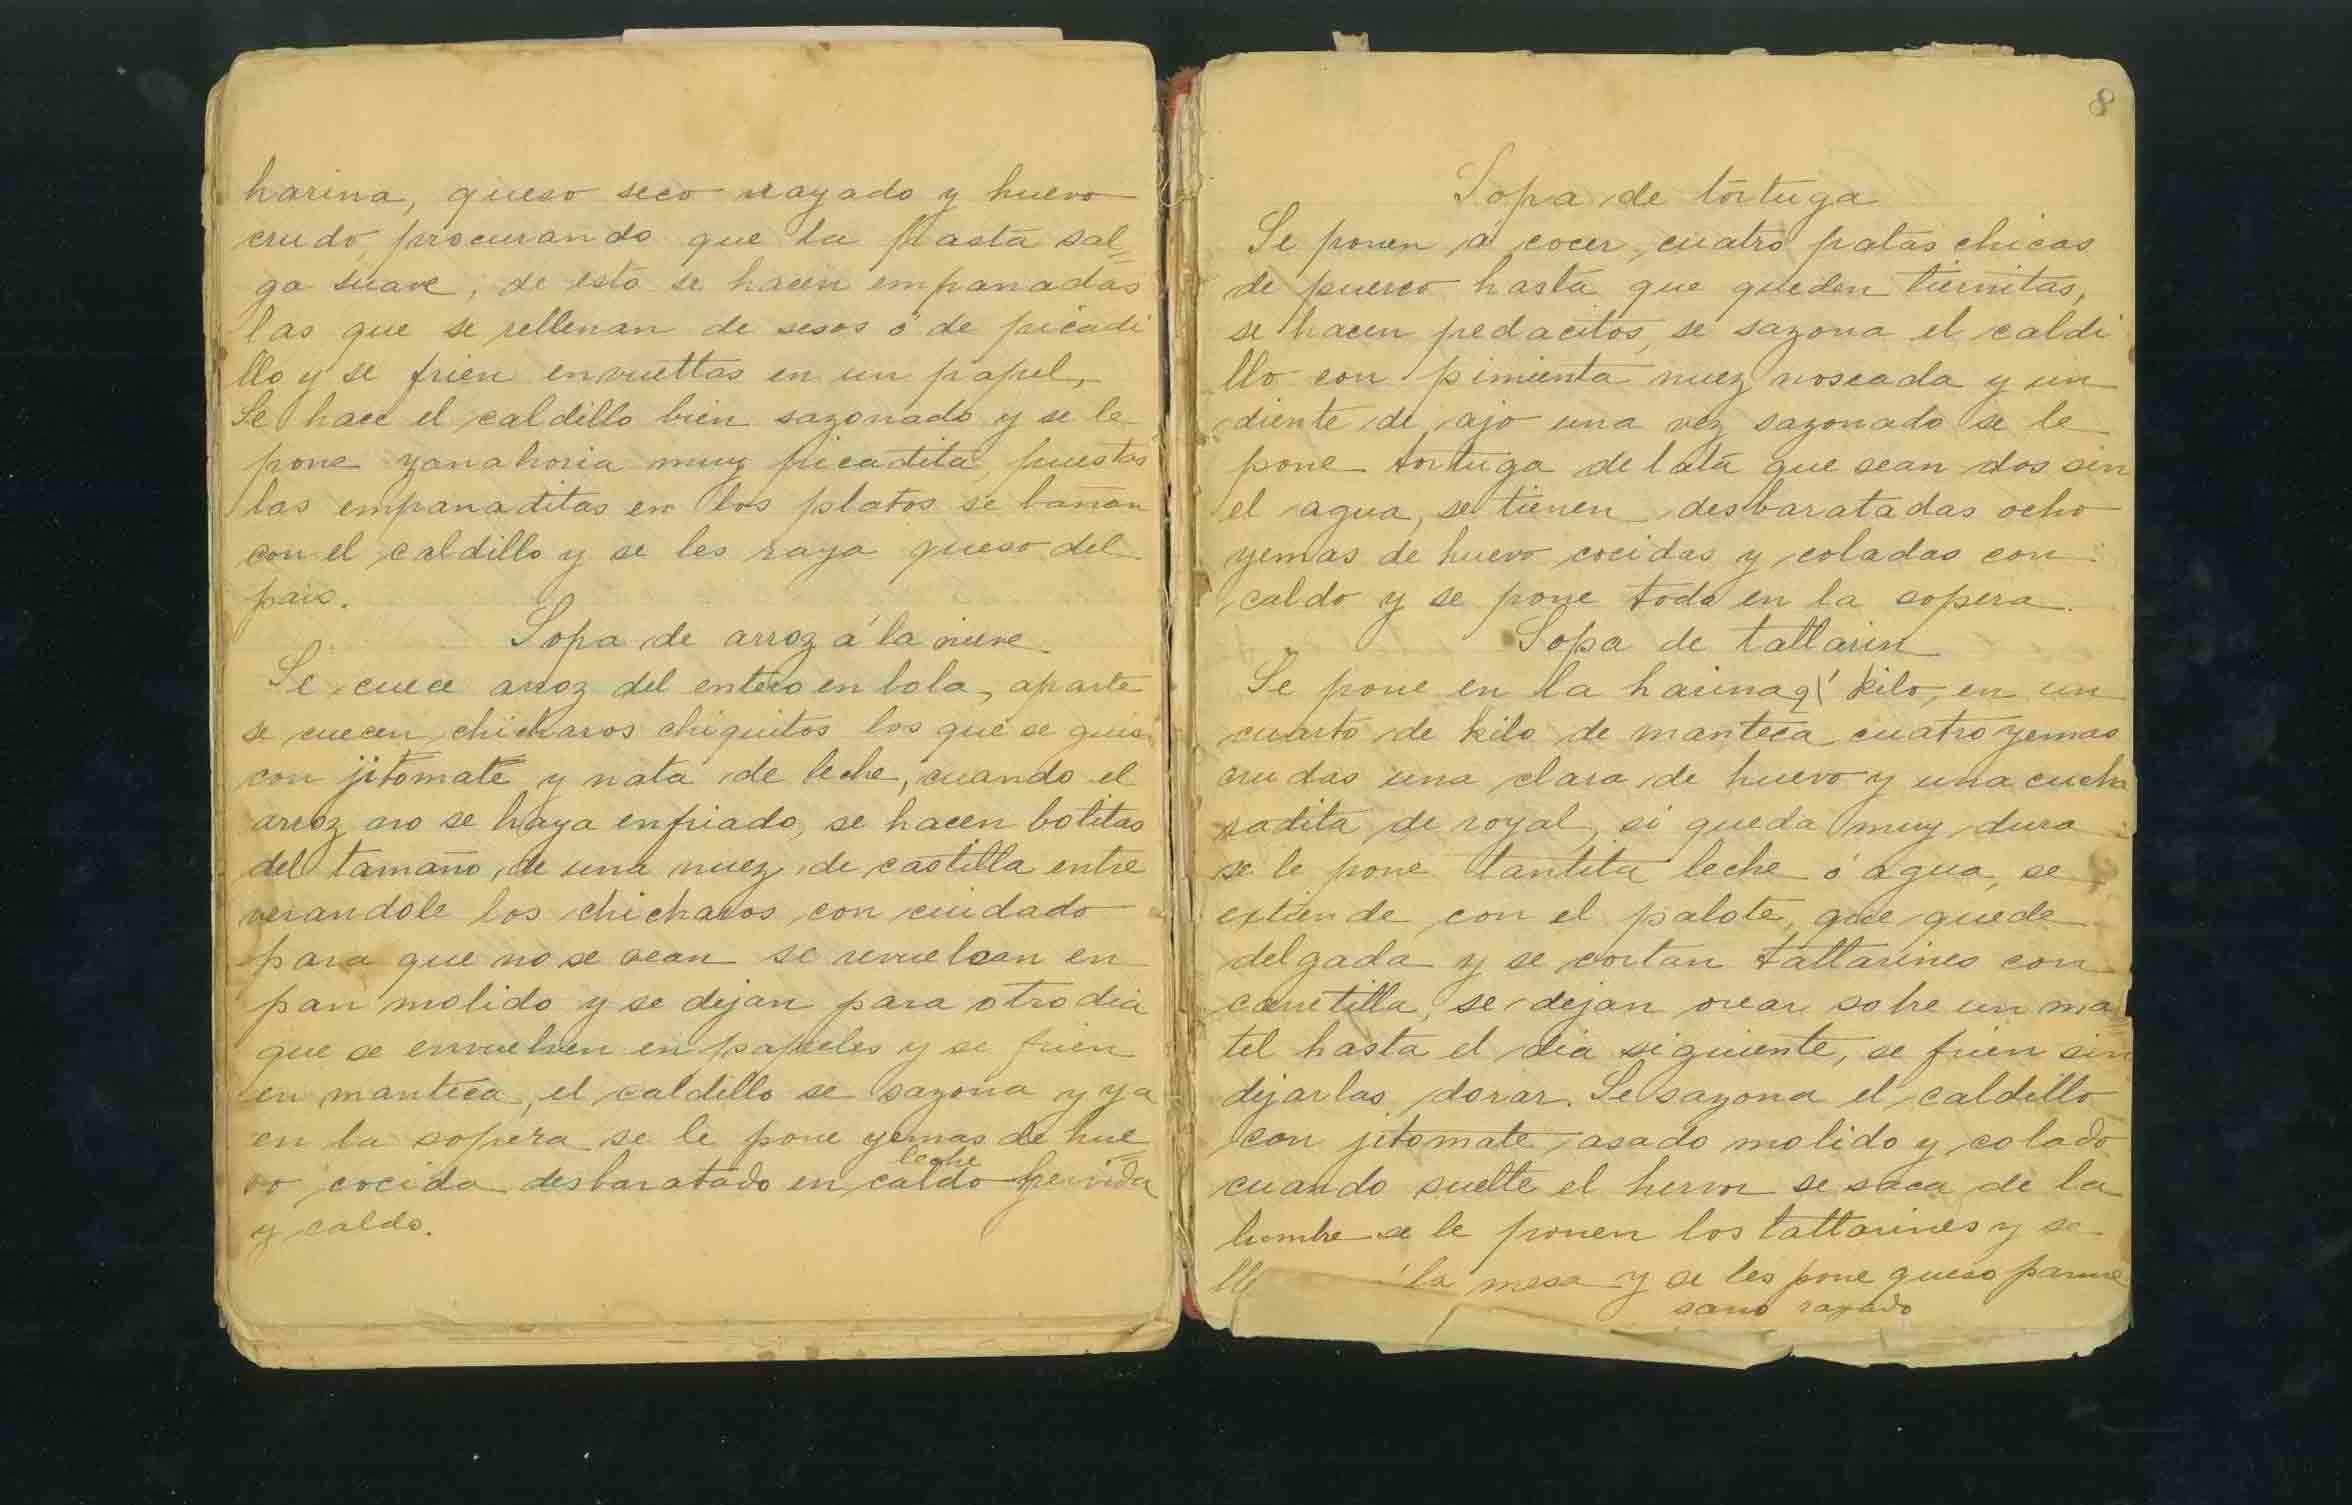 harina, queso seco rayado y huevo
crudo, procurando que la pasta sal=
ga suave, de esto se hacen empanadas
las que se rellenan de sesos ó de picadi
llo y se frien envueltas en un papel,
Se hace el caldillo bien sazonado y se le
pone zanahoria muy picadita, puestas
las empanaditas en los platos se bañan
con el caldillo y se les raya queso del
pais.
Sopa de arroz á la nieve.
Se cuece arroz del entero en bola, aparte
se cuecen chicharos chiquitos los que se guis
con jitomate y nata de leche, cuando el
arroz no se haya enfriado, se hacen bolitas
del tamaño de una nuez de castilla entre
verandole los chicharos con cuidado
para que no se vean se revuelcan en
pan molido y se dejan para otro dia
que se envuelven en papeles y se frien
en manteca, el caldillo se sazona y ya
en la sopera se le pone yemas de hue=
vo cocida desbaratado en caldo leche hervida
y caldo.
8
Sopa de tortuga
Se ponen á cocer cuatro patas chicas
de puerco hasta que queden tiernitas,
se hacen pedacitos, se sazona el caldi
llo con pimienta nuez noscada y un
diente de ajo una vez sazonado se le
pone tortuga de lata que sean dos sin
el agua, se tienen desbaratadas ocho
yemas de huevo cocidas y coladas con
caldo y se pone todo en la sopera.
Sopa de tallarin
Se pone en la harina kilo, en un
cuarto de kilo de manteca cuatro yemas
crudas una clara de huevo y una cucha
radita de royal, si queda muy dura
se le pone tantita leche ó agua, se
extiende con el palote, que quede
delgada y se cortan tallarines con
carretilla, se dejan orear sobre un ma=
tel hasta el dia siguiente, se frien sin
dejarlas dorar. Se sazona el caldillo
con jitomate asado molido y colado
cuando suelte el hervor se saca de la
lumbre se le ponen los tallarines y se
ll á la mesa y se les pone queso parme
sano rayado